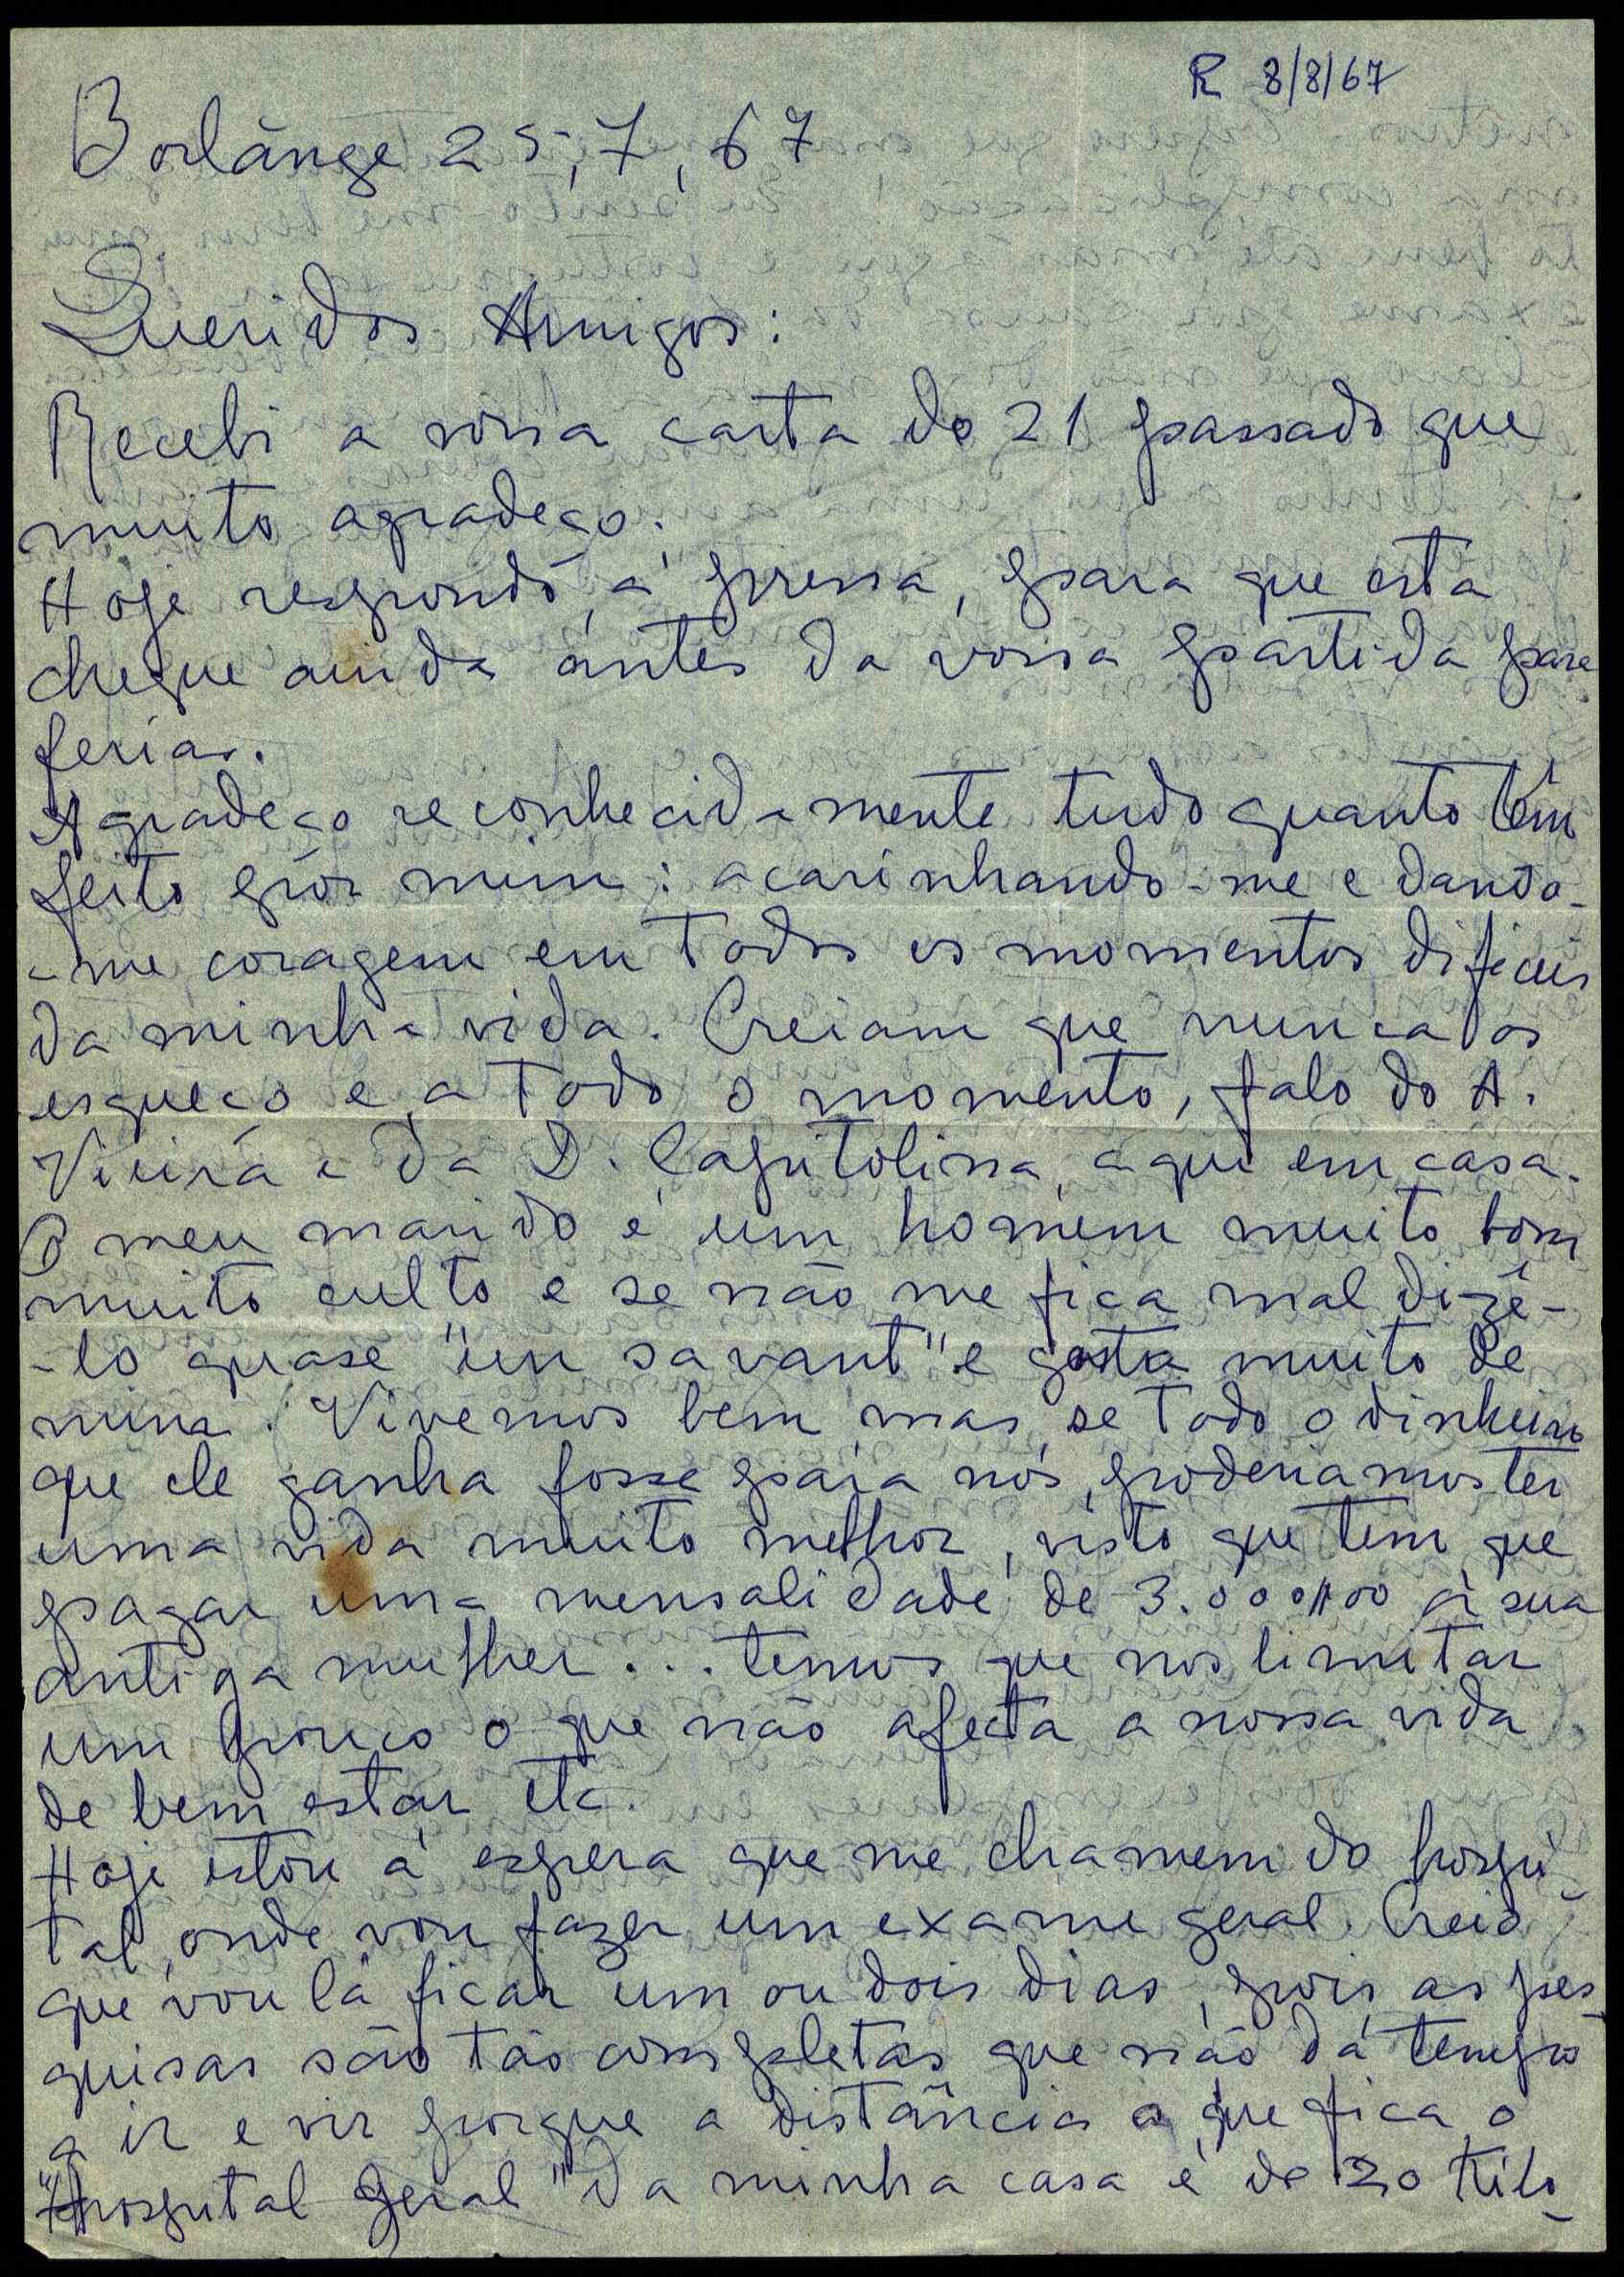 R 8/8/67
Borlänge 25,7,67
Queridos Amigos:
Recebi a vossa carta de 21 passado que
muito agradeço.
Hoje respondo, á pressa, para que esta
chegue ainda antes da vossa partida para
ferias.
Agradeço reconhecidamente tudo quanto têm
feito por mim: acarinhando-me e dando-
-me coragem em todos os momentos dificeis
da minha vida. Creiam que nunca os
esqueço e, a todo o momento, falo do A.
Vieira e da D. Capitolina, aqui em casa.
O meu marido é um homem muito bom,
muito culto e se não me fica mal dizê-
-lo quase "un savant" e gosta muito de
mim. Vivemos bem, mas, se todo o dinheiro
que ele ganha fosse para nós, poderiamos ter
uma vida muito melhor, visto que tem que
pagar uma mensalidade de 3.000$00 à sua
antiga mulher... temos que nos limitar
um pouco o que não afecta a nossa vida
de bem estar etc.
Hoje estou á espera que me chamem do hospi-
tal, onde vou fazer um exame geral. Creio
que vou lá ficar um ou dois dias, pois as pes-
quisas são tão completas que não dá tempo
a ir e vir porque a distância a que fica o
"Hospital Geral" da minha casa é de 20 kilo-